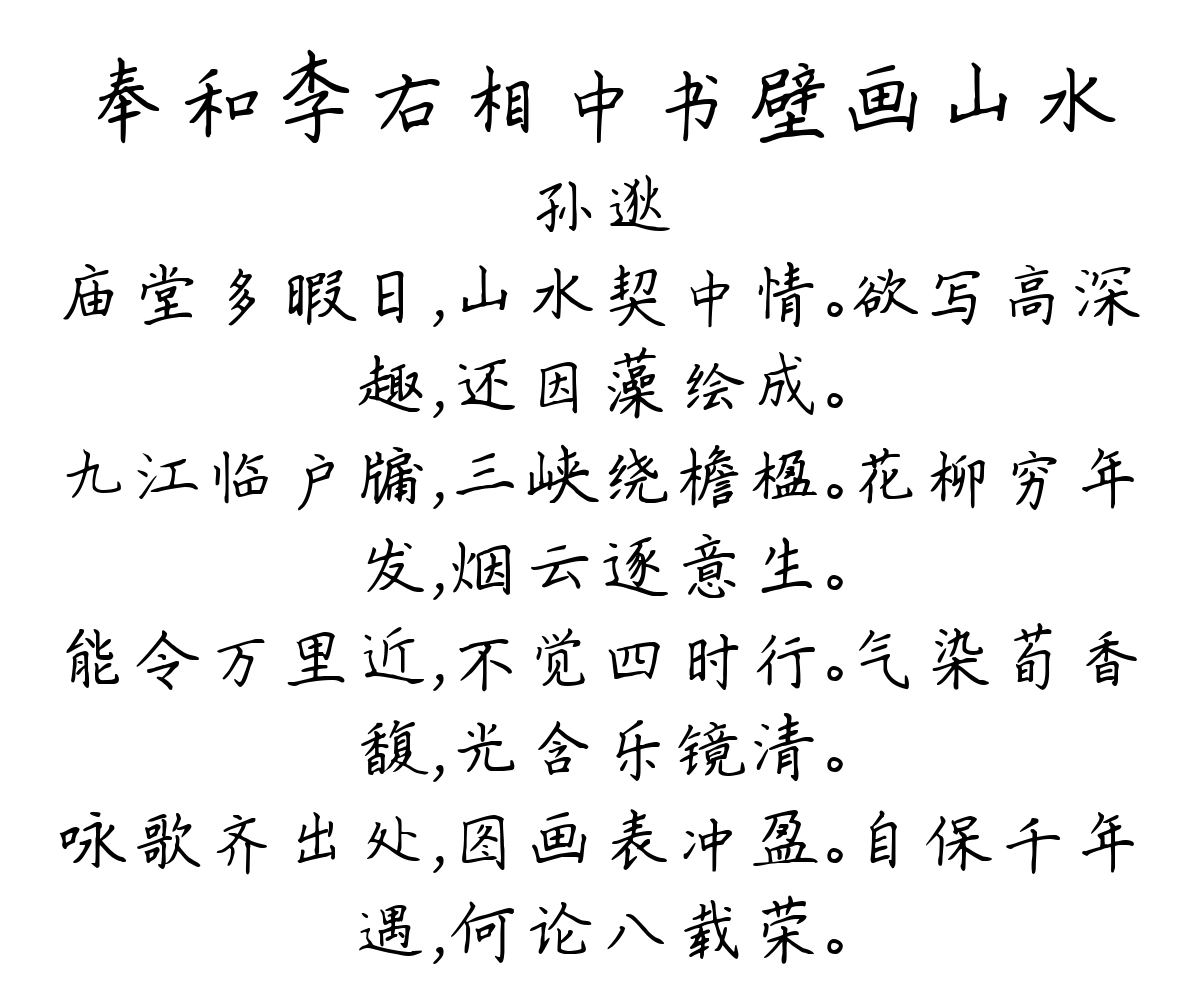 奉和李右相中书壁画山水
孙逖
庙堂多暇日,山水契中情。欲写高深
趣,还因藻绘成。
九江临户牖,三峡绕檐楹。花柳穷年
发,烟云逐意生。
能令万里近,不觉四时行。气染荀香
馥,光含乐镜清。
咏歌齐出处,图画表冲盈。自保千年
遇,何论八载荣。